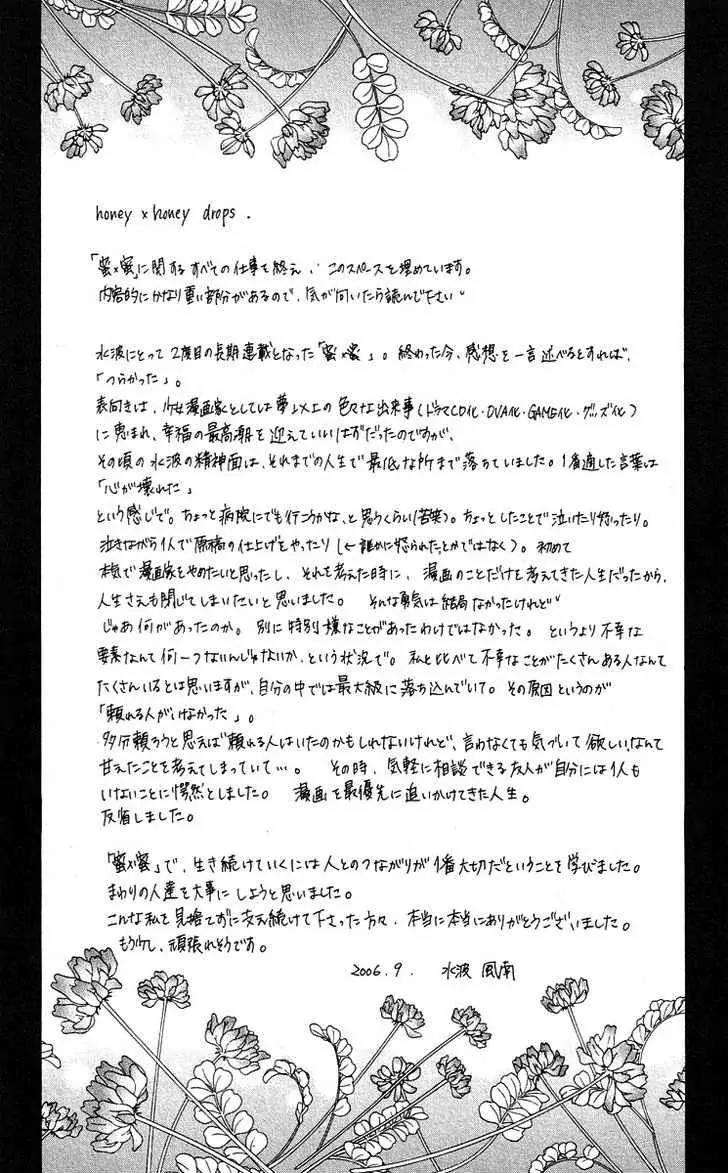 honey × honey drops.
「蜜×蜜」に関するすべての仕事を終え、このスペースを埋めています。
内容的にかなり重い部分があるので、気が向いたら読んで下さい
水波にとって2度目の長期連載となった「蜜×蜜」。終わった今、感想を一言述べるとすれば、
「つらかった」。
表向きは、少女漫画家としては夢以上の色々な出来事(ドラマCD化・OVA化・GAME化・グッズ化)
に恵まれ、幸福の最高潮を迎えていいはずだったのですが、
その頃の水波の精神面は、それまでの人生で最低な所まで落ちていました。1番適した言葉は
「心が壊れた」
という感じで。ちょっと病院にでも行こうかな、と思うくらい(苦笑)。ちょっとしたことで泣いたり怒ったり。
泣きながら1人で原稿の仕上げをやったり(←誰かに怒られたとかではなく)。初めて
本気で漫画家をやめたいと思ったし、それを考えた時に、漫画のことだけを考えてきた人生だったから、
人生さえも閉じてしまいたいと思いました。そんな勇気は結局なかったけれど
じゃあ何があったのか。別に特別嫌なことがあったわけではなかった。というより不幸な
要素なんて何一つないんじゃないか、という状況で。私と比べて不幸なことがたくさんある人なんて
たくさんいるとは思いますが、自分の中では最大級に落ち込んでいて。その原因というのが
「頼れる人がいなかった」。
多分頼ろうと思えば頼れる人はいたのかもしれないけれど、言わなくても気づいて欲しい、なんて
甘えたことを考えてしまっていて…。その時、気軽に相談できる友人が自分には1人も
いないことに愕然としました。漫画を最優先に追いかけてきた人生。
反省しました。
「蜜×蜜」で、生き続けていくには人とのつながりが1番大切だということを学びました。
まわりの人達を大事にしようと思いました。
こんな私を見捨てずに支え続けて下さった方々、本当に本当にありがとうございました。
もう少し、頑張れそうです。
2006.9. 水波 風南